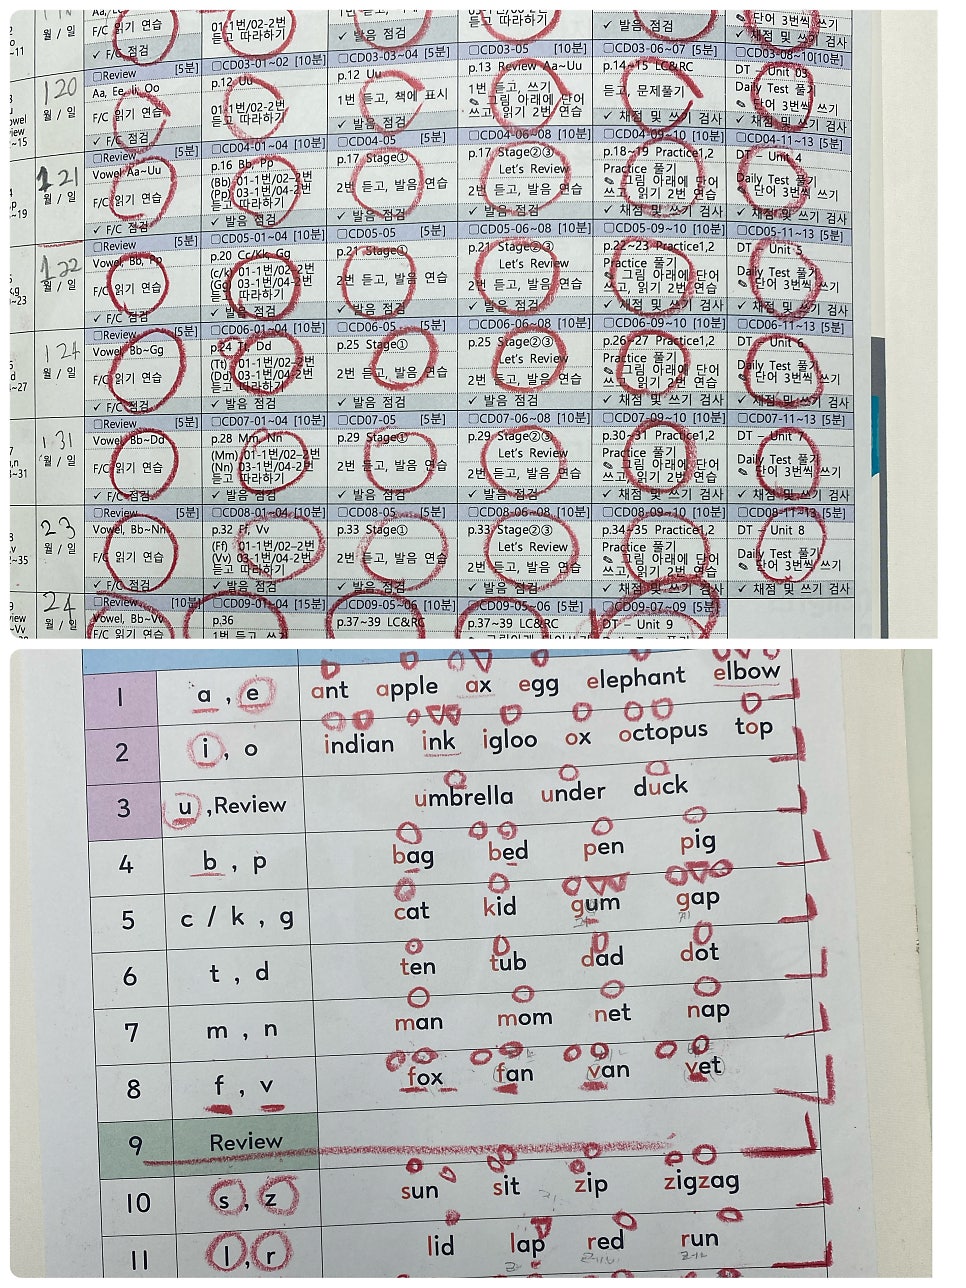 F/C 읽기 연습
01-1번/02-2번
듣고 따라하기
✓ 발음 점검
✎ 단어 3번씩 쓰기
✓ F/C 점검
✓ 채점 및 쓰기 검사
1 20
월 / 일
☐Review [5분] ☐CD03-01~02 [10분] ☐CD03-03~04 [5분] ☐CD03-05 [10분] ☐CD03-06~07 [5분] ☐CD03-08~10[10분]
Aa, Ee, Ii, Oo p.12 Uu p.12 Uu p.13 Review Aa~Uu p.14~15 LC&RC DT - Unit 03
F/C 읽기 연습 01-1번/02-2번 1번 듣고, 책에 표시 1번 듣고, 쓰기 듣고, 문제풀기 Daily Test 풀기
듣고 따라하기 ✎ 그림 아래에 단어 ✎ 단어 3번씩 쓰기
쓰고, 읽기 2번 연습
✓ F/C 점검 ✓ 발음 점검 ✓ 채점 및 쓰기 검사 ✓ 채점 및 쓰기 검사
1 21
월 / 일
☐Review [5분] ☐CD04-01~04 [10분] ☐CD04-05 [5분] ☐CD04-06~08 [10분] ☐CD04-09~10 [10분] ☐CD04-11~13 [5분]
Vowel Aa~Uu p.16 Bb, Pp p.17 Stage① p.17 Stage②③ p.18~19 Practice1,2 DT - Unit 4
(Bb) 01-1번/02-2번 Let's Review Practice 풀기
F/C 읽기 연습 (Pp) 03-1번/04-2번 2번 듣고, 발음 연습 2번 듣고, 발음 연습 ✎ 그림 아래에 단어 Daily Test 풀기
듣고 따라하기 쓰고, 읽기 2번 연습 ✎ 단어 3번씩 쓰기
✓ F/C 점검 ✓ 발음 점검 ✓ 발음 점검 ✓ 발음 점검 ✓ 채점 및 쓰기 검사 ✓ 채점 및 쓰기 검사
1 22
월 / 일
☐Review [5분] ☐CD05-01~04 [10분] ☐CD05-05 [5분] ☐CD05-06~08 [10분] ☐CD05-09~10 [10분] ☐CD05-11~13 [5분]
Vowel, Bb, Pp p.20 Cc/Kk, Gg p.21 Stage① p.21 Stage②③ p.22~23 Practice1,2 DT - Unit 5
(c/k) 01-1번/02-2번 Let's Review Practice 풀기
F/C 읽기 연습 (Gg) 03-1번/04-2번 2번 듣고, 발음 연습 2번 듣고, 발음 연습 ✎ 그림 아래에 단어 Daily Test 풀기
듣고 따라하기 쓰고, 읽기 2번 연습 ✎ 단어 3번씩 쓰기
✓ F/C 점검 ✓ 발음 점검 ✓ 발음 점검 ✓ 발음 점검 ✓ 채점 및 쓰기 검사 ✓ 채점 및 쓰기 검사
1 24
월 / 일
☐Review [5분] ☐CD06-01~04 [10분] ☐CD06-05 [5분] ☐CD06-06~08 [10분] ☐CD06-09~10 [10분] ☐CD06-11~13 [5분]
Vowel, Bb~Gg p.24 Tt, Dd p.25 Stage① p.25 Stage②③ p.26~27 Practice1,2 DT - Unit 6
(Tt) 01-1번/02-2번 Let's Review Practice 풀기
F/C 읽기 연습 (Dd) 03-1번/04-2번 2번 듣고, 발음 연습 2번 듣고, 발음 연습 ✎ 그림 아래에 단어 Daily Test 풀기
듣고 따라하기 쓰고, 읽기 2번 연습 ✎ 단어 3번씩 쓰기
✓ F/C 점검 ✓ 발음 점검 ✓ 발음 점검 ✓ 발음 점검 ✓ 채점 및 쓰기 검사 ✓ 채점 및 쓰기 검사
1 31
월 / 일
☐Review [5분] ☐CD07-01~04 [10분] ☐CD07-05 [5분] ☐CD07-06~08 [10분] ☐CD07-09~10 [10분] ☐CD07-11~13 [5분]
Vowel, Bb~Dd p.28 Mm, Nn p.29 Stage① p.29 Stage②③ p.30~31 Practice1,2 DT - Unit 7
(Mm) 01-1번/02-2번 Let's Review Practice 풀기
F/C 읽기 연습 (Nn) 03-1번/04-2번 2번 듣고, 발음 연습 2번 듣고, 발음 연습 ✎ 그림 아래에 단어 Daily Test 풀기
듣고 따라하기 쓰고, 읽기 2번 연습 ✎ 단어 3번씩 쓰기
✓ F/C 점검 ✓ 발음 점검 ✓ 발음 점검 ✓ 발음 점검 ✓ 채점 및 쓰기 검사 ✓ 채점 및 쓰기 검사
2 3
월 / 일
☐Review [5분] ☐CD08-01~04 [10분] ☐CD08-05 [5분] ☐CD08-06~08 [10분] ☐CD08-09~10 [10분] ☐CD08-11~13 [5분]
Vowel, Bb~Nn p.32 Ff, Vv p.33 Stage① p.33 Stage②③ p.34~35 Practice1,2 DT - Unit 8
(Ff) 01-1번/02-2번 Let's Review Practice 풀기
F/C 읽기 연습 (Vv) 03-1번/04-2번 2번 듣고, 발음 연습 2번 듣고, 발음 연습 ✎ 그림 아래에 단어 Daily Test 풀기
듣고 따라하기 쓰고, 읽기 2번 연습 ✎ 단어 3번씩 쓰기
✓ F/C 점검 ✓ 발음 점검 ✓ 발음 점검 ✓ 발음 점검 ✓ 채점 및 쓰기 검사 ✓ 채점 및 쓰기 검사
2 4
월 / 일
☐Review [10분] ☐CD09-01~04 [15분] ☐CD09-05~06 [10분] ☐CD09-05~06 [5분] ☐CD09-07~09 [5분]
Vowel, Bb~Vv p.36 p.37~39 LC&RC p.37~39 LC&RC DT - Unit 9
F/C 읽기 연습
1 a , e ant apple ax egg elephant elbow
2 i , o indian ink igloo ox octopus top
3 u ,Review umbrella under duck
4 b , p bag bed pen pig
5 c / k , g cat kid gum gap
6 t , d ten tub dad dot
7 m , n man mom net nap
8 f , v fox fan van vet
9 Review
10 s , z sun sit zip zigzag
11 l , r lid lap red run